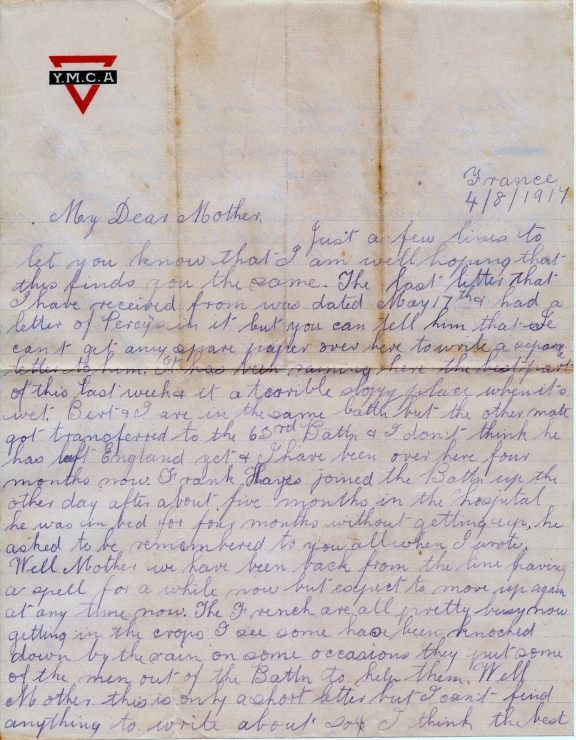 Y.M.C.A
France
4/8/1917
My Dear Mother,
Just a few lines to
let you know that I am well hoping that
thys finds you the same. The last letter that
I have received from was dated May 17th & had a
letter of Percys in it but you can tell him that we
can't get any spare paper over here to write a
letter to him. It has been raining here the best part
of this last week & it a terrible slopy place when it's
wet. Bert & I are in the same Battn but the other mate
got transferred to the 63rd Battn & I don't think he
has left England yet & I have been over here four
months now. Frank Hayes joined the Battn up the
other day after about five months in the hospital
he was in bed for four months without getting up, he
asked to be remembered to you all when I wrote.
Well Mother we have been back from the line having
a spell for a while now but expect to move up again
at any time now. The French are all pretty busy now
getting in the crops I see some have been knocked
down by the rain on some occasions they put some
of the men out of the Battn to help them. Well
Mother this is only a short letter but I can't find
anything to write about so I think the best